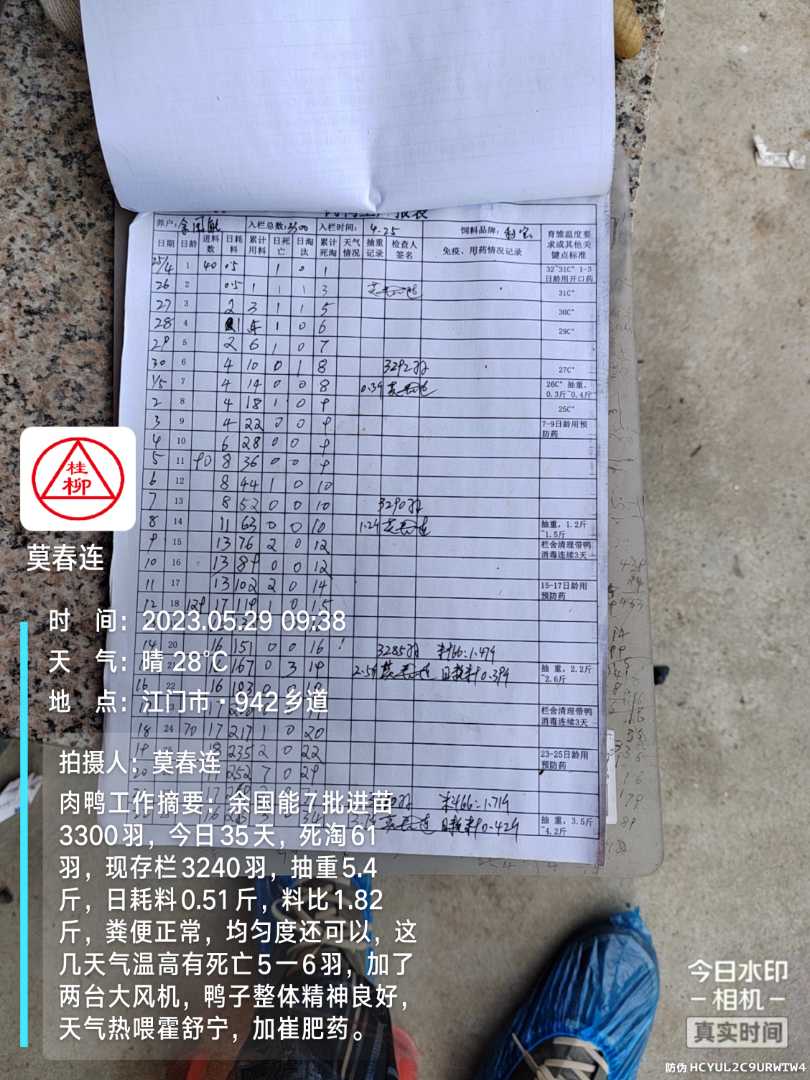 养户:余国能 入栏总数:3300 入栏时间:4-25 饲料品牌:
日期 日龄 进料数 日耗料 累计用料 日死亡 日淘汰 累计死淘 天气情况 抽重记录 检查人签名 免疫、用药情况记录 育雏温度要求或其他关键点标准
25/4 1 40 0.5 1 0 1 32~31C° 1-3日龄用开口药
26 2 0.5 1 1 1 3 31C°
27 3 2 3 1 1 5 30C°
28 4 1 4 1 0 6 29C°
29 5 2 6 1 0 7
30 6 4 10 0 1 8 3292羽 27C°
1/5 7 4 14 0 0 8 26C° 抽重,0.3斤~0.4斤
2 8 4 18 1 0 9 25C°
3 9 4 22 0 0 9 7-9日龄用预防药
4 10 6 28 0 0 9
5 11 90 8 36 0 0 9
6 12 8 44 1 0 10
7 13 8 52 0 0 10 3290羽
8 14 11 63 0 0 10 抽重,1.2斤~1.5斤
9 15 13 76 2 0 12 栏舍清理带鸭消毒连续3天
10 16 13 89 0 0 12
11 17 13 102 2 0 14 15-17日龄用预防药
12 18 129 17 119 1 0 15
14 20 16 151 0 0 16 3285羽 料比:1.47斤
167 0 3 19 2.5斤 日耗料0.39斤 抽重,2.2斤~2.6斤
16 22
栏舍清理带鸭消毒连续3天
18 24 70 17 217 1 0 20
19 18 235 2 0 22 23-25日龄用预防药
252 7 0 29
料比:1.71斤
日耗料0.42斤 抽重,3.5斤~4.2斤
桂
柳
莫春连
时 间:2023.05.29 09:38
天 气:晴 28℃
地 点:江门市·942乡道
拍摄人:莫春连
肉鸭工作摘要:余国能7批进苗
3300羽,今日35天,死淘61
羽,现存栏3240羽,抽重5.4
斤,日耗料0.51斤,料比1.82
斤,粪便正常,均匀度还可以,这
几天气温高有死亡5一6羽,加了
两台大风机,鸭子整体精神良好,
天气热喂霍舒宁,加崔肥药。
今日水印
相机
真实时间
防伪 HCYUL2C9URWTW4